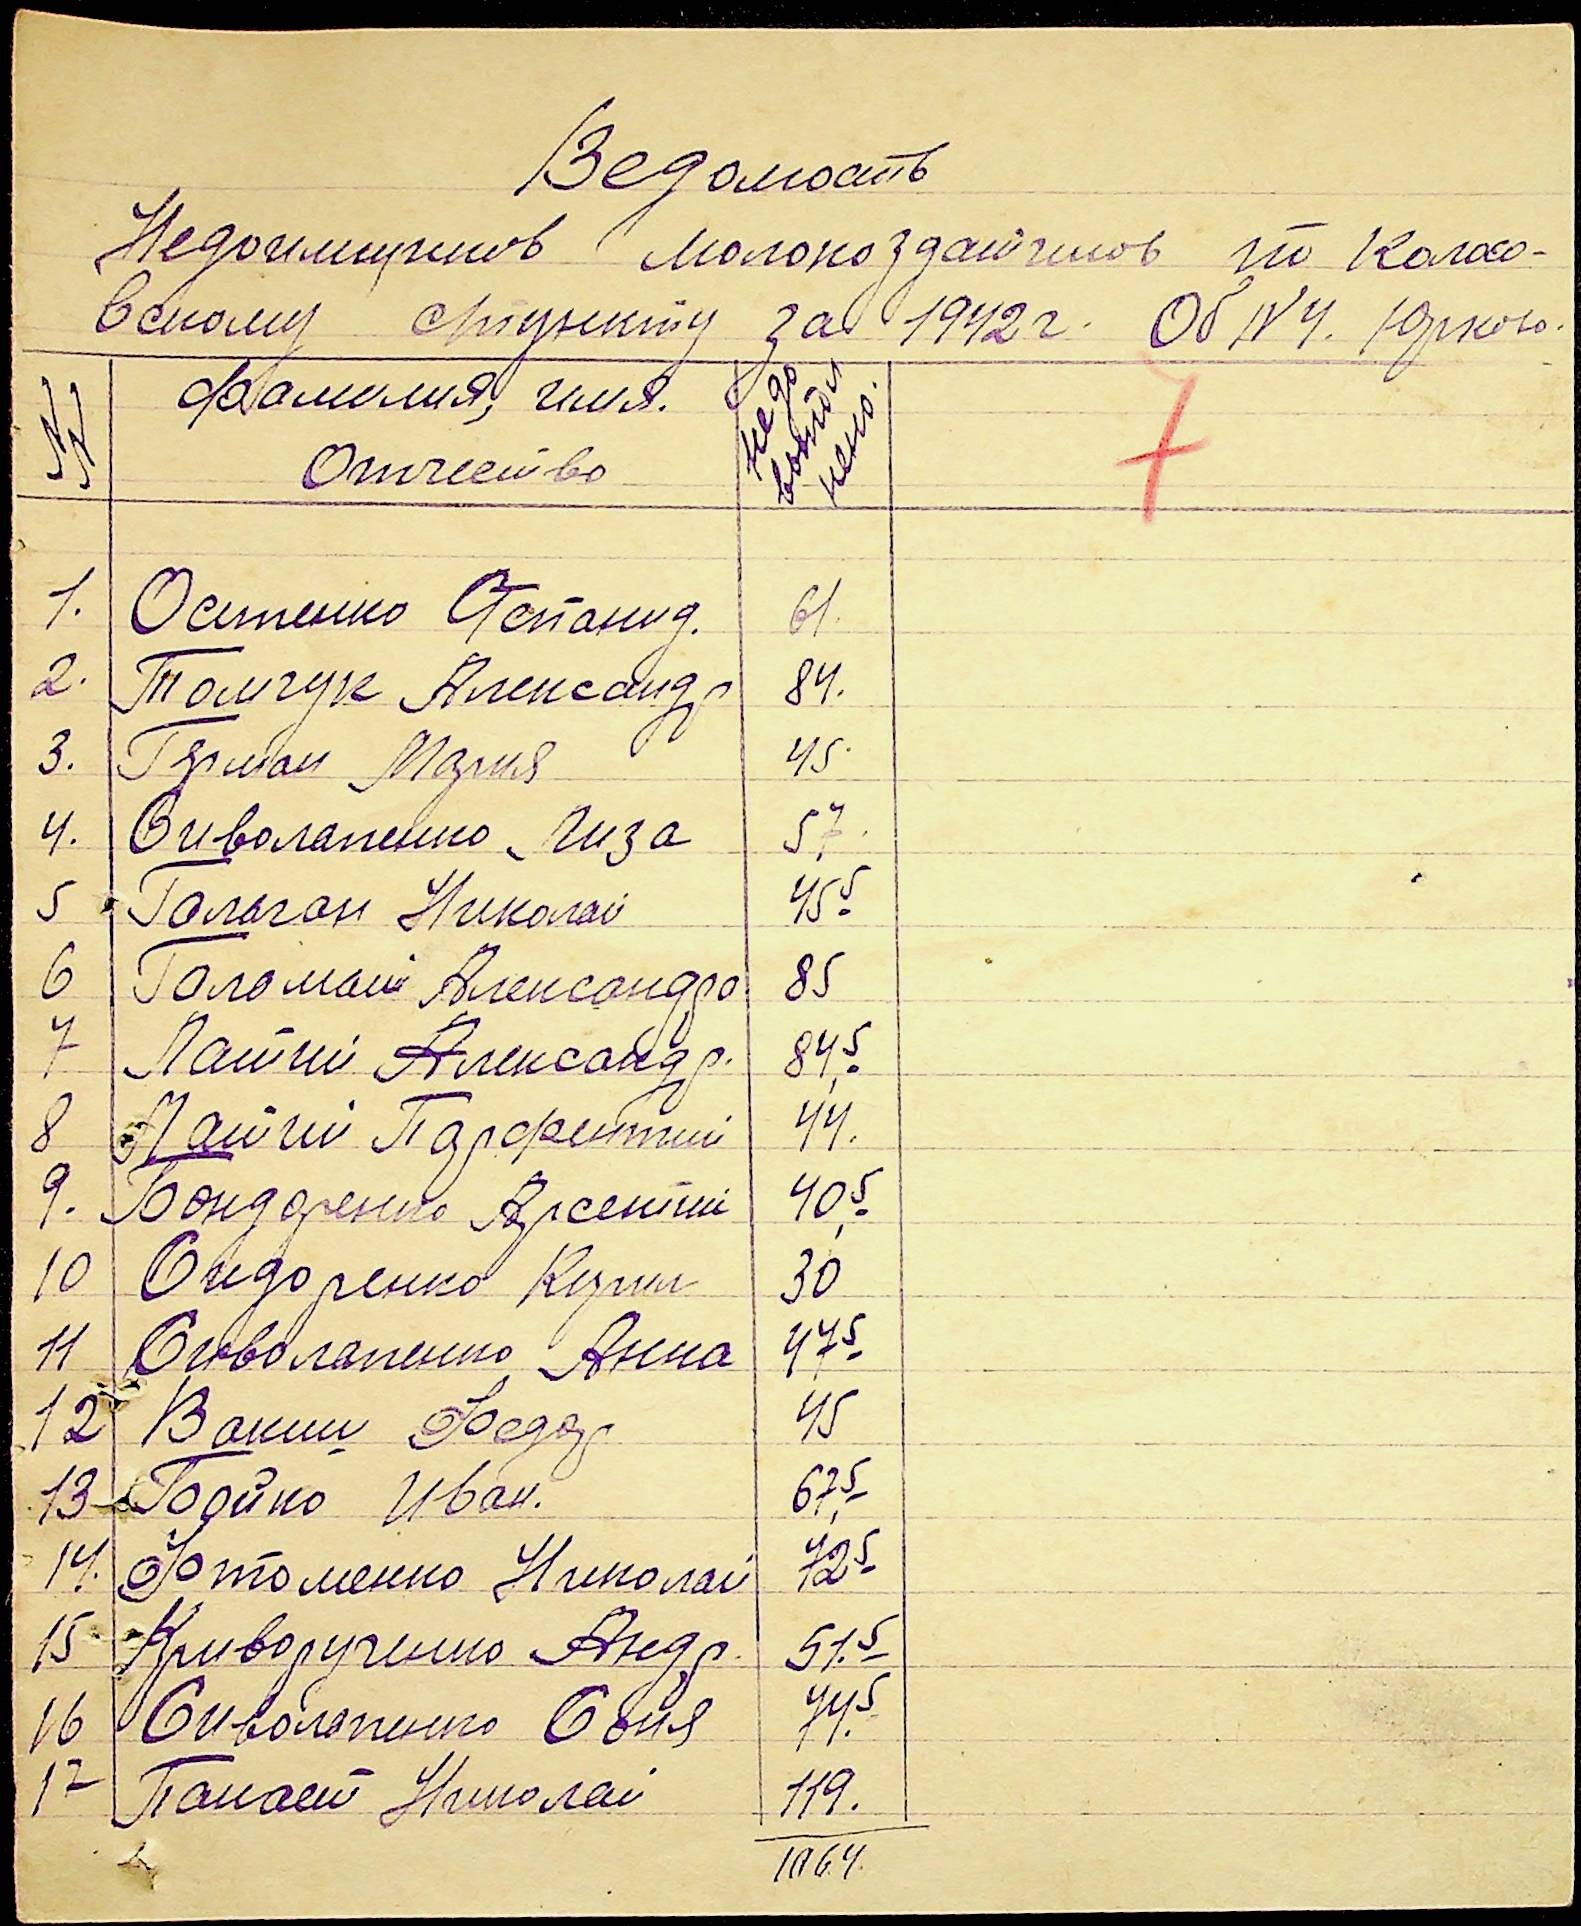 Ведомость
Недоимщиков молокоздатчиков по Калаво-
вскому спункту за 1942 г. Об №4. Юрково.
NN
Фамилия, имя.
Отчество
недо
выпол
нено.
1. Остенко Степанид. 61.
2. Томчук Александр 84.
3. Герман Мария 45.
4. Сиволапенко Лиза 57.
5 Гольган Николай 45 5
6 Голомай Александра 85
7 Латий Александр. 84,5
8 Латий Парфентий 44.
9. Бондаренко Арсентий 40,5
10 Сидоренко Кирил 30
11 Сиволапенко Анна 47 5
12 Ваким Федор 45
13 Бойко Иван. 67,5
14. Фтоменко Николай 72 5
15 Криворученко Андр. 51.5
16 Сиволапенко Соня 74.5
17 Панасет Николай 119.
1064.